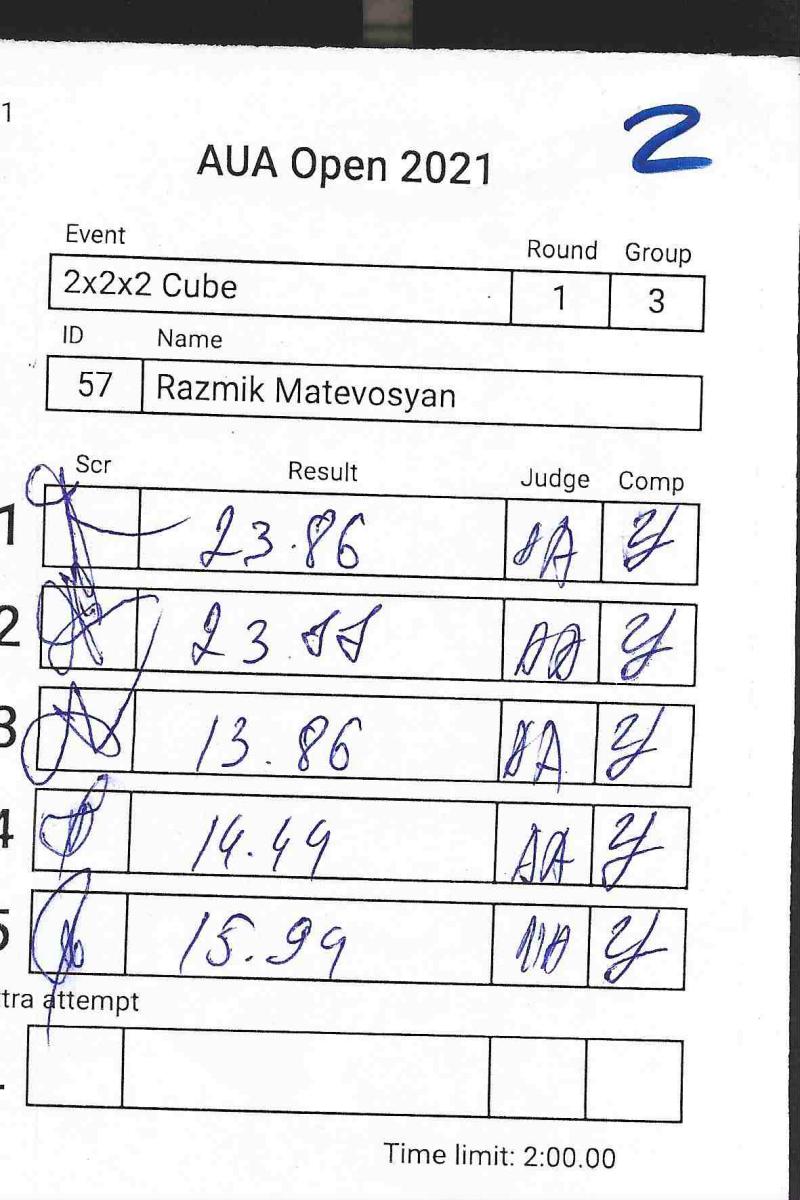 1
2
AUA Open 2021
Event Round Group
2x2x2 Cube 1 3
ID Name
57 Razmik Matevosyan
Scr Result Judge Comp
1 23.86 AA У
2 23. AA У
3 13.86 AA У
4 14.49 AA У
5 15.99 У
tra attempt
Time limit: 2:00.00